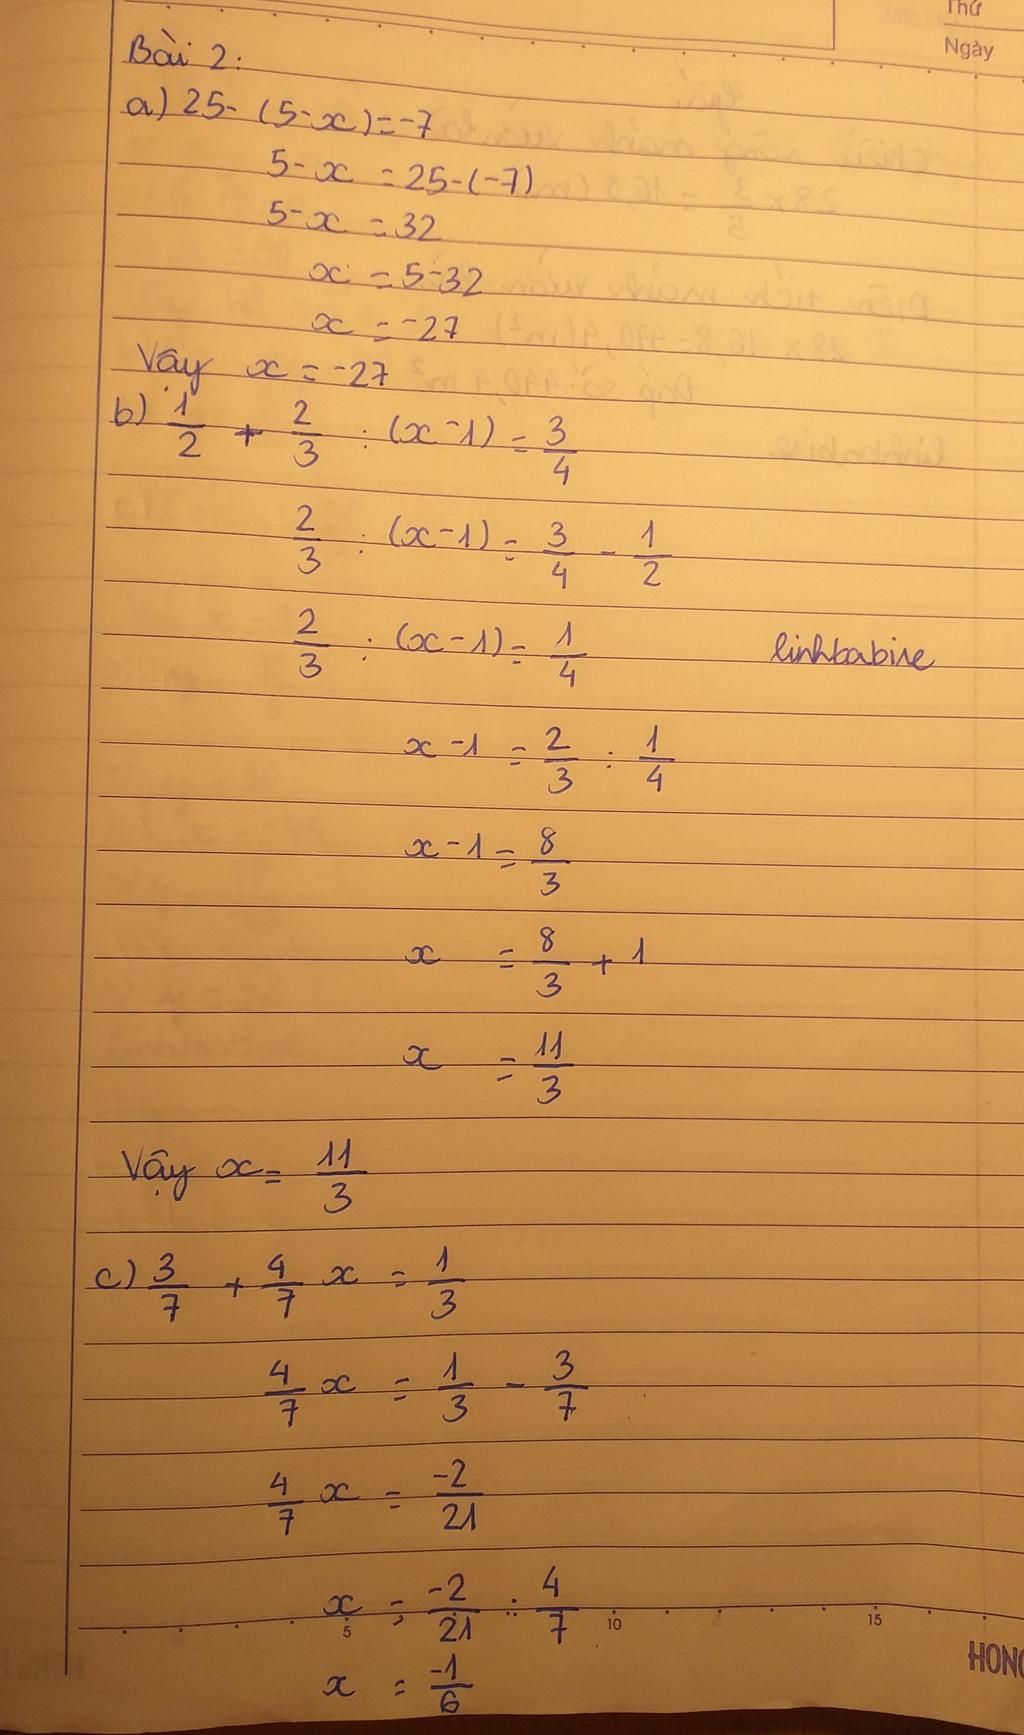 Thứ
Ngày
Bài 2:
a) 25-(5-x)=-7
5-x = 25-(-7)
5-x = 32
x = 5-32
x = -27
Vậy x = -27
b) 1/2 + 2/3 : (x-1) = 3/4
2/3 : (x-1) = 3/4 - 1/2
2/3 : (x-1) = 1/4
linhbabire
x-1 = 2/3 : 1/4
x-1 = 8/3
x = 8/3 + 1
x = 11/3
Vậy x = 11/3
c) 3/7 + 4/7 x = 1/3
4/7 x = 1/3 - 3/7
4/7 x = -2/21
x = -2/21 : 4/7
5 10 15
HONG
x = -1/6